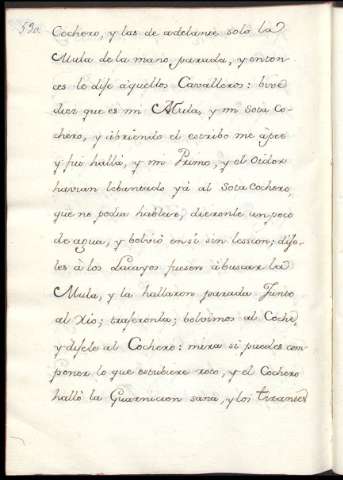 530.
Cochero, y las de adelante solo la
Mula de la mano, parada, y enton
ces le dije à aquellos Cavalleros: bive
dies que es mi Mula, y mi Sota Co-
chero, y abriendo el estribo me àpeè
y fuì hallà, y mi Primo, y el Oidor
havian lebantado yà al Sota Cochero,
que no podia hablar, dieronle un poco
de agua, y bolviò en sì sin lession; dije
les à los Lacayos fuesen à buscar la
Mula, y la hallaron parada Junto
al Rio; trajeronla; bolvimos al Coche,
y dijele al Cochero: mira si puedes com
poner lo que estubiere roto, y el Cochero
hallò la Guarnicion sana, y los tirantes